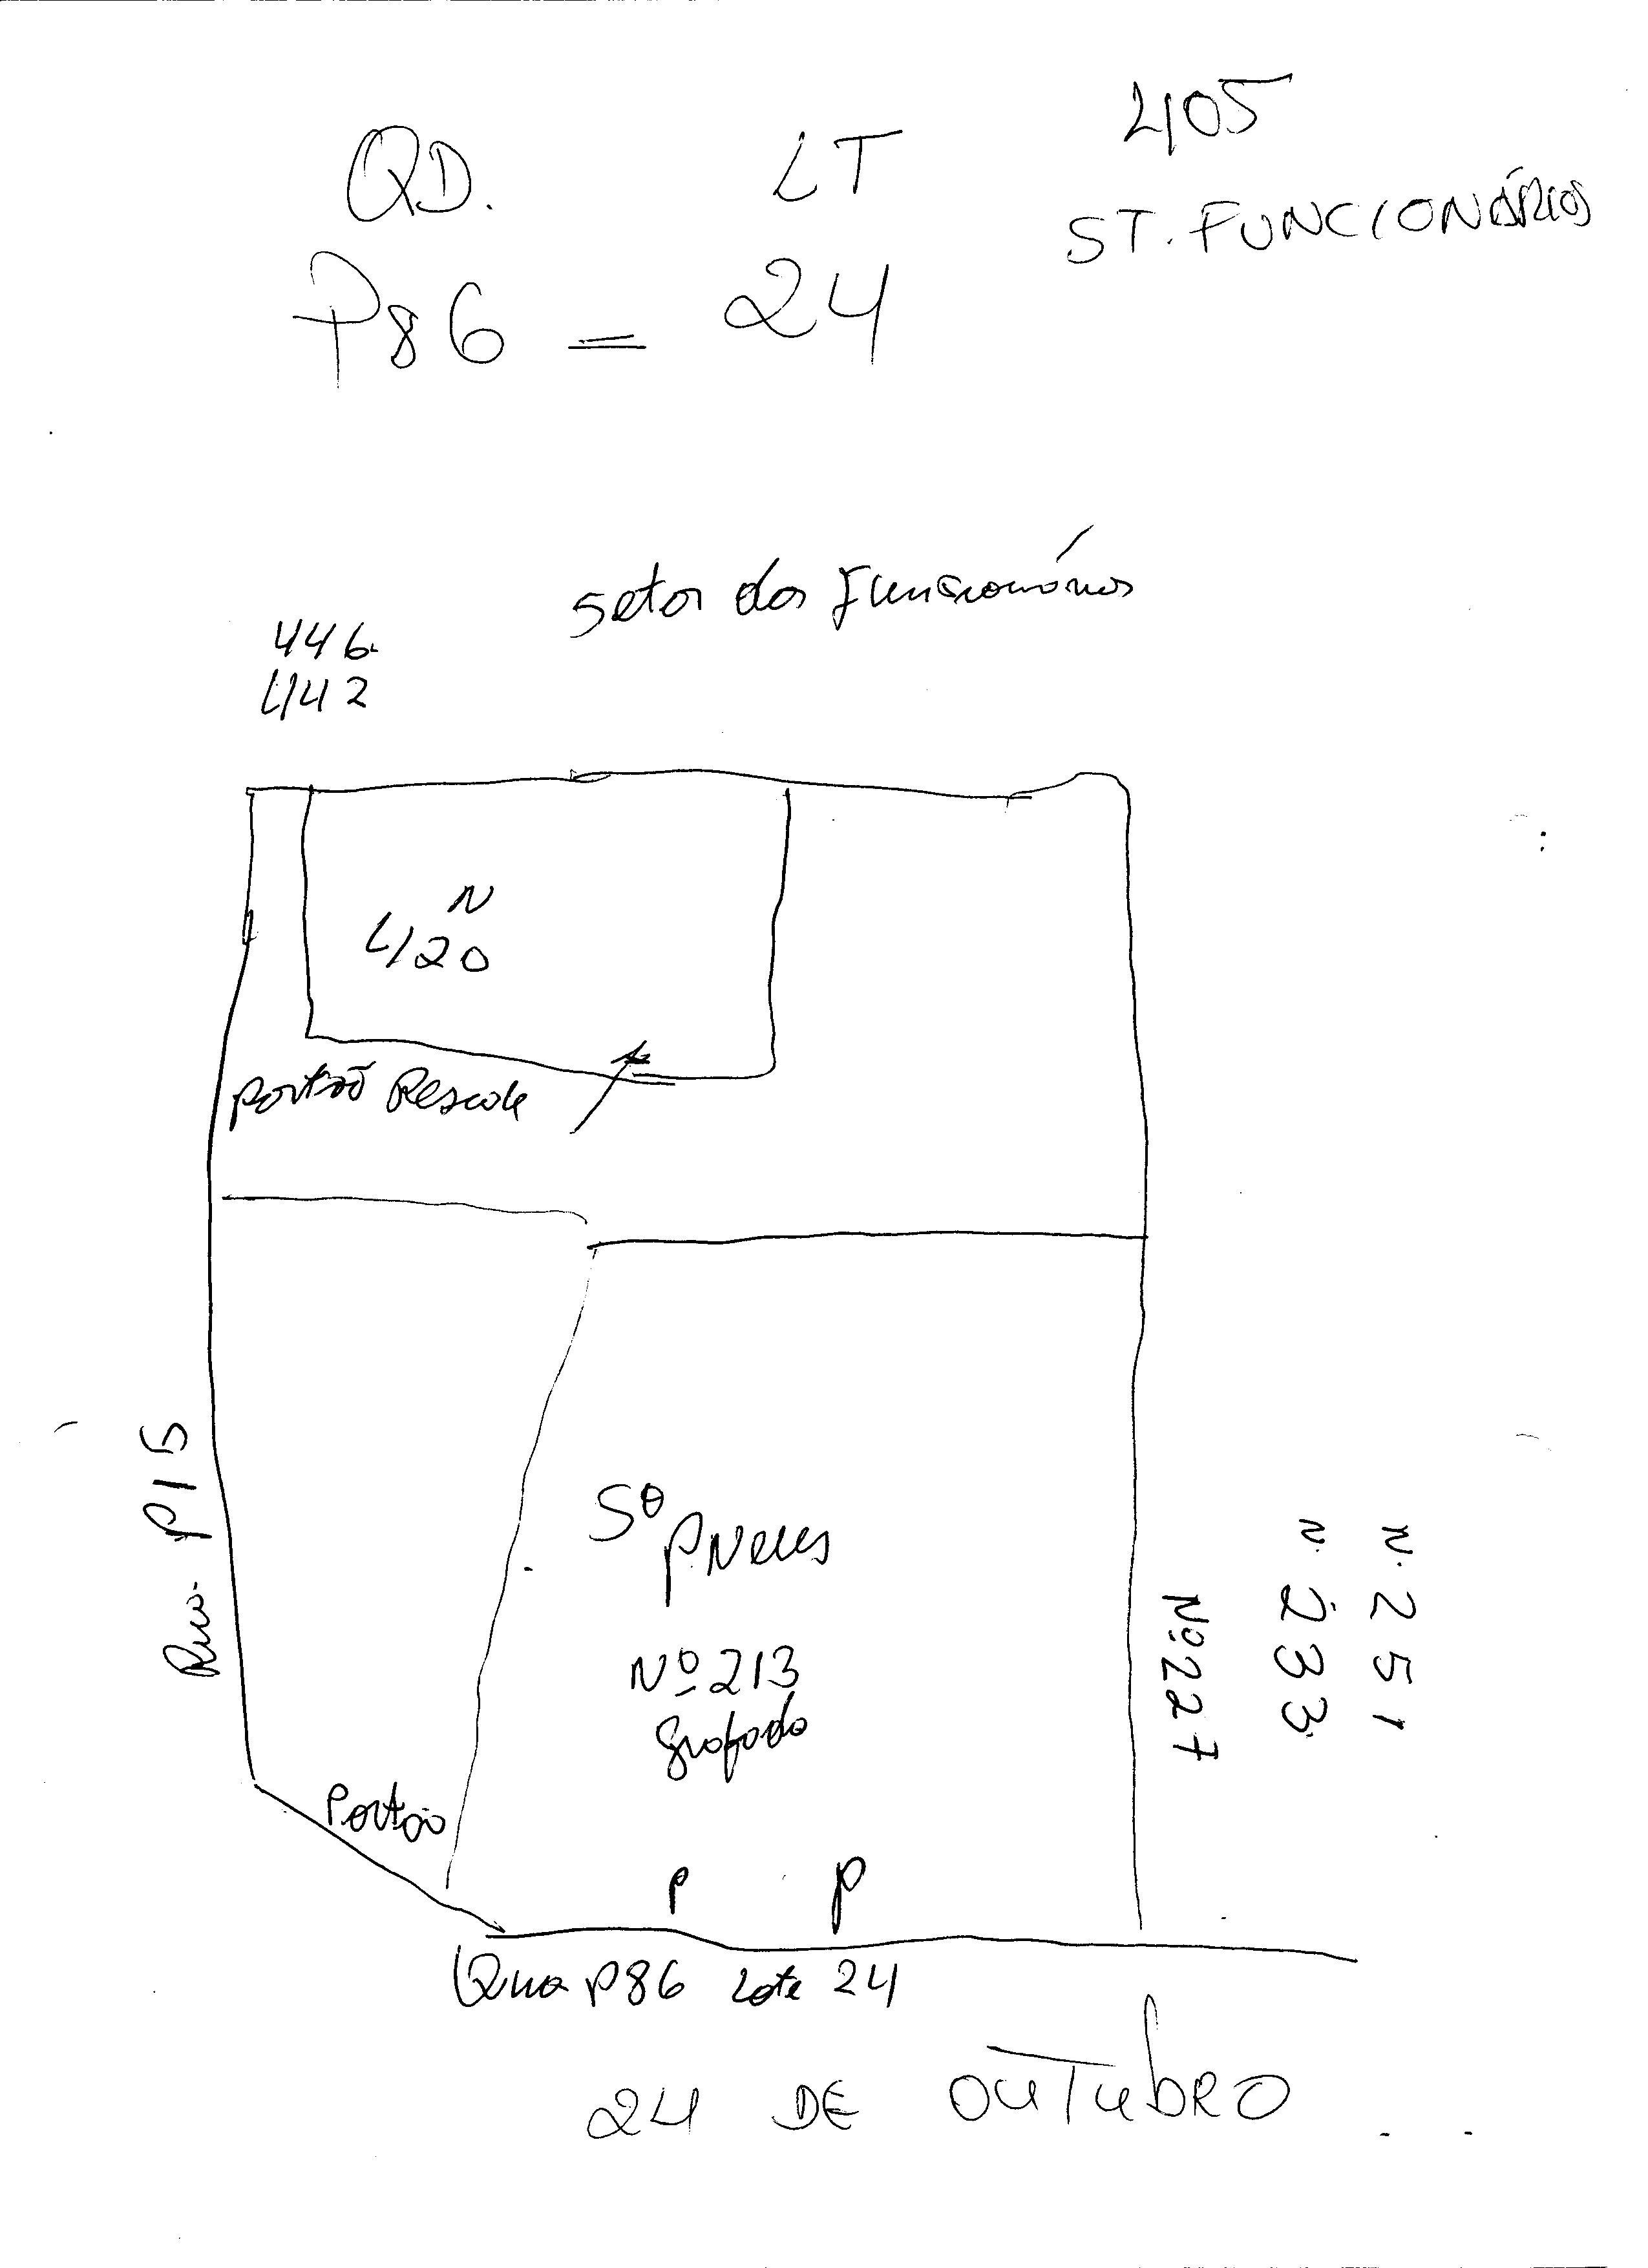 QD. LT 405
ST. FUNCIONÁRIOS
P86 = 24
setor dos Funcionários
446
442
N
420
portão
Rua P15
Sº
PNeus
Nº 213
N.º 227
N. 233
N. 251
Portão
P P
Qua P86 Lote 24
24 DE OUTUBRO